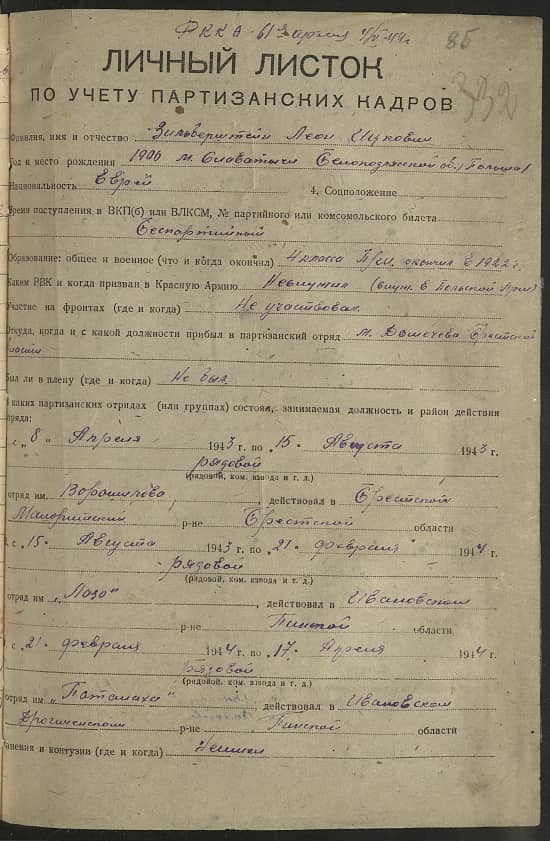 РККА - 61 армия
86
332
ЛИЧНЫЙ ЛИСТОК
ПО УЧЕТУ ПАРТИЗАНСКИХ КАДРОВ
Фамилия, имя и отчество Зильверштейн Леон Ицкович
Год и место рождения 1906 м. Славатычи Белоподлясской об. (Польша)
Национальность Еврей 4. Соцположение
Время поступления в ВКП(б) или ВЛКСМ, № партийного или комсомольского билета
Беспартийный
Образование: общее и военное (что и когда окончил) 4 класса окончил в 1922 г.
Каким РВК и когда призван в Красную Армию Невлужил в Польской Арм)
Участие на фронтах (где и когда) Не участвовал.
Откуда, когда и с какой должности прибыл в партизанский отряд м. Домачево Брестской
области
был ли в плену (где и когда) Не был.
В каких партизанских отрядах (или группах) состоял, занимаемая должность и район действия
отряда:
с „8" Апреля 1943 г. по 15 Августа 1943 г.
рядовой
(рядовой, ком. взвода и т. д.)
отряд им. Ворошилова, действовал в Брестской
Малоритский р-не Брестской области
с 15 Августа 1943 г. по 21 февраля 1944 г.
рядовой
(рядовой, ком. взвода и т. д.)
отряд им „Лазо", действовал в Ивановском
р-не Пинской области
с 21 февраля 1944 г. по 17 Апреля 1944 г.
рядовой
(рядовой, ком. взвода и т. д.)
отряд им „Паталаха", действовал в Ивановском
Дрогиченском р-не Пинской области
Ранения и контузии (где и когда) Не имел